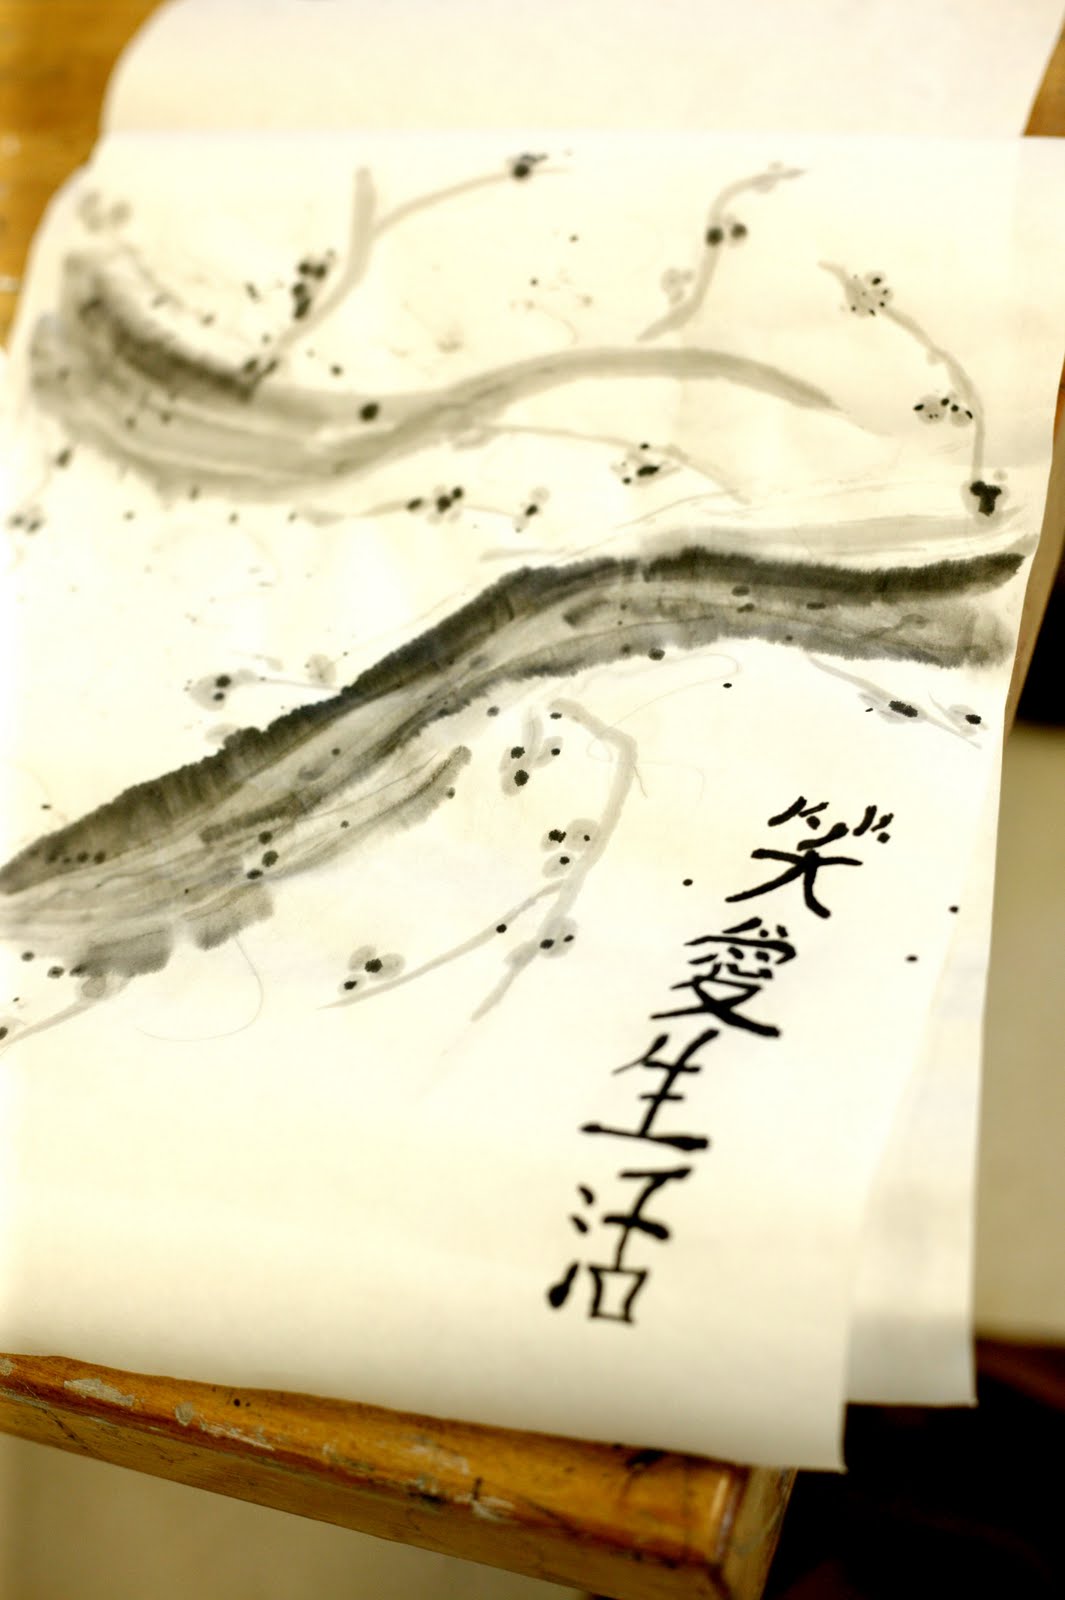 笑愛生活